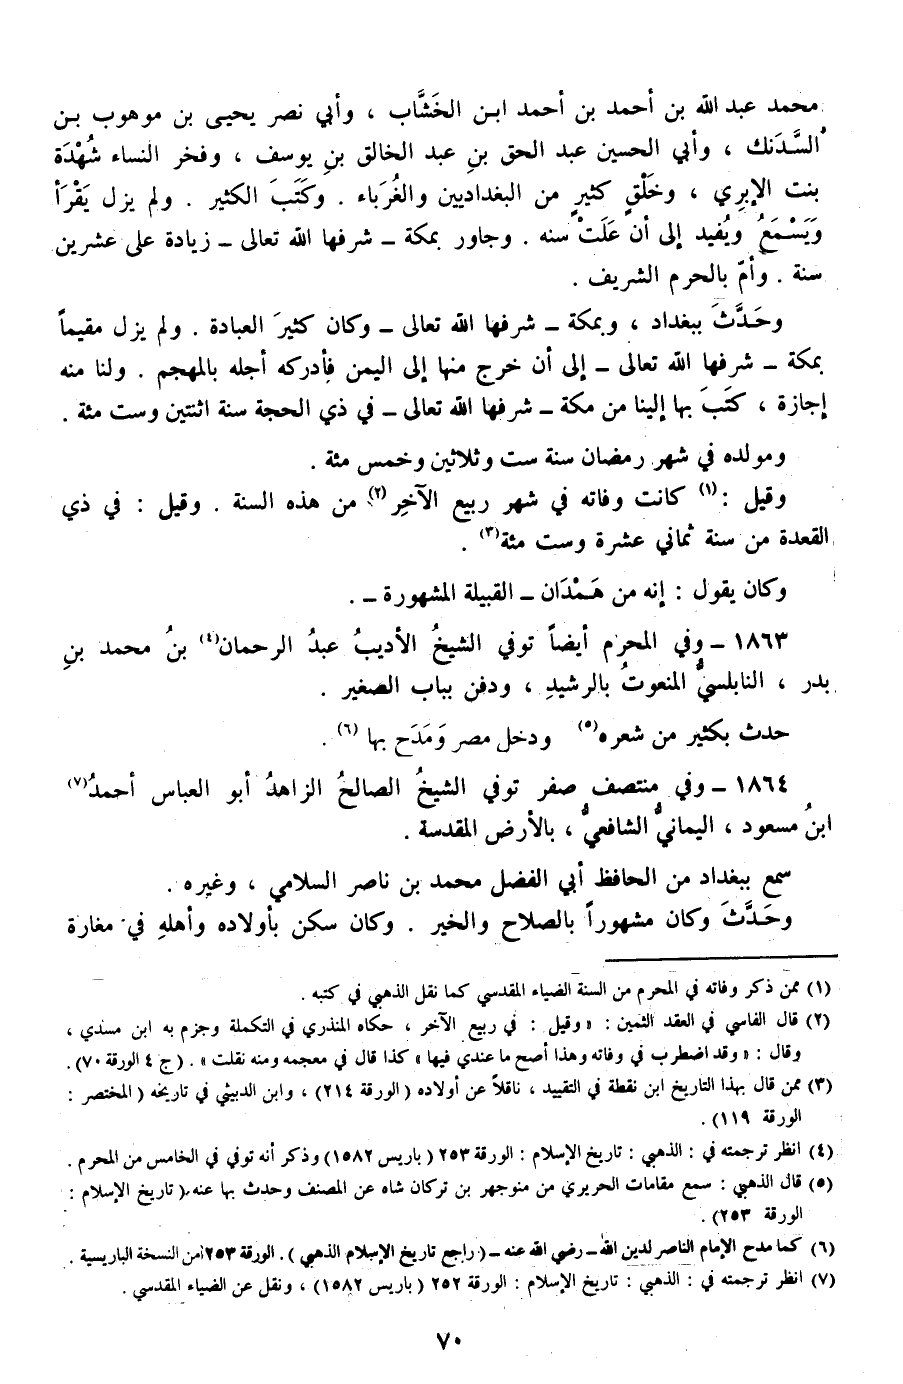 محمد عبد الله بن أحمد بن أحمد ابن الخَشَّاب ، وأبي نصر يحيى بن موهوب بن
السَّدَنك ، وأبي الحسين عبد الحق بنِ عبد الخالق بنِ يوسف ، وفخر النساء شُهْدَة
بنت الإبرِي ، وخَلْقٍ كثيرٍ من البغداديين والغُرَباء . وكَتَبَ الكثير . ولم يزل يَقْرَأ
وَيَسْمَعُ ويُفيد إلى أن عَلَتْ سنه . وجاور بمكة ــ شرفها الله تعالى ــ زيادة على عشرين
سنة . وأمّ بالحرم الشريف .
وحَدَّثَ ببغداد ، وبمكة ــ شرفها الله تعالى ــ وكان كثيرَ العبادة . ولم يزل مقيماً
بمكة ــ شرفها الله تعالى ــ إلى أن خرج منها إلى اليمن فأدركه أجله بالمهجم . ولنا منه
إجازة ، كتَبَ بها إلينا من مكة ــ شرفها الله تعالى ــ في ذي الحجة سنة اثنتين وست مئة .
ومولده في شهر رمضان سنة ست وثلاثين وخمس مئة .
وقيل :(١) كانت وفاته في شهر ربيع الآخِر(٢) من هذه السنة . وقيل : في ذي
القعدة من سنة ثماني عشرة وست مئة(٣) .
وكان يقول : إنه من هَمْدَان ــ القبيلة المشهورة ــ .
١٨٦٣ ــ وفي المحرم أيضاً توفي الشيخُ الأديبُ عبدُ الرحمان(٤) بنُ محمد بنِ
بدر ، النابلسيُّ المنعوتُ بالرشيدِ ، ودفن بباب الصغير .
حدث بكثير من شعره(٥) ودخل مصر وَمَدَح بها (٦) .
١٨٦٤ ــ وفي منتصف صفر توفي الشيخُ الصالحُ الزاهدُ أبو العباس أحمدُ(٧)
ابنُ مسعود ، اليمانيُّ الشافعيُّ ، بالأرض المقدسة .
سمع ببغداد من الحافظ أبي الفضل محمد بن ناصر السلامي ، وغيره .
وحَدَّثَ وكان مشهوراً بالصلاح والخير . وكان سكن بأولاده وأهلهِ في مغارة
(١) ممن ذكر وفاته في المحرم من السنة الضياء المقدسي كما نقل الذهبي في كتبه .
(٢) قال الفاسي في العقد الثمين : « وقيل : في ربيع الآخر ، حكاه المنذري في التكملة وجزم به ابن مسدي ،
وقال : « وقد اضطرب في وفاته وهذا أصح ما عندي فيها » كذا قال في معجمه ومنه نقلت » . (ج ٤ الورقة ٧٠).
(٣) ممن قال بهذا التاريخ ابن نقطة في التقييد ، ناقلاً عن أولاده (الورقة ٢١٤) ، وابن الدبيثي في تاريخه (المختصر :
الورقة ١١٩) .
(٤) انظر ترجمته في : الذهبي : تاريخ الإسلام : الورقة ٢٥٣ (باريس ١٥٨٢) وذكر أنه توفي في الخامس من المحرم .
(٥) قال الذهبي : سمع مقامات الحريري من منوجهر بن تركان شاه عن المصنف وحدث بها عنه (تاريخ الإسلام :
الورقة ٢٥٣) .
(٦) كما مدح الإمام الناصر لدين الله ــ رضي الله عنه ــ (راجع تاريخ الإسلام الذهبي ) . الورقة ٢٥٣ من النسخة الباريسية .
(٧) انظر ترجمته في : الذهبي : تاريخ الإسلام : الورقة ٢٥٢ (باريس ١٥٨٢) ، ونقل عن الضياء المقدسي .
٧٠